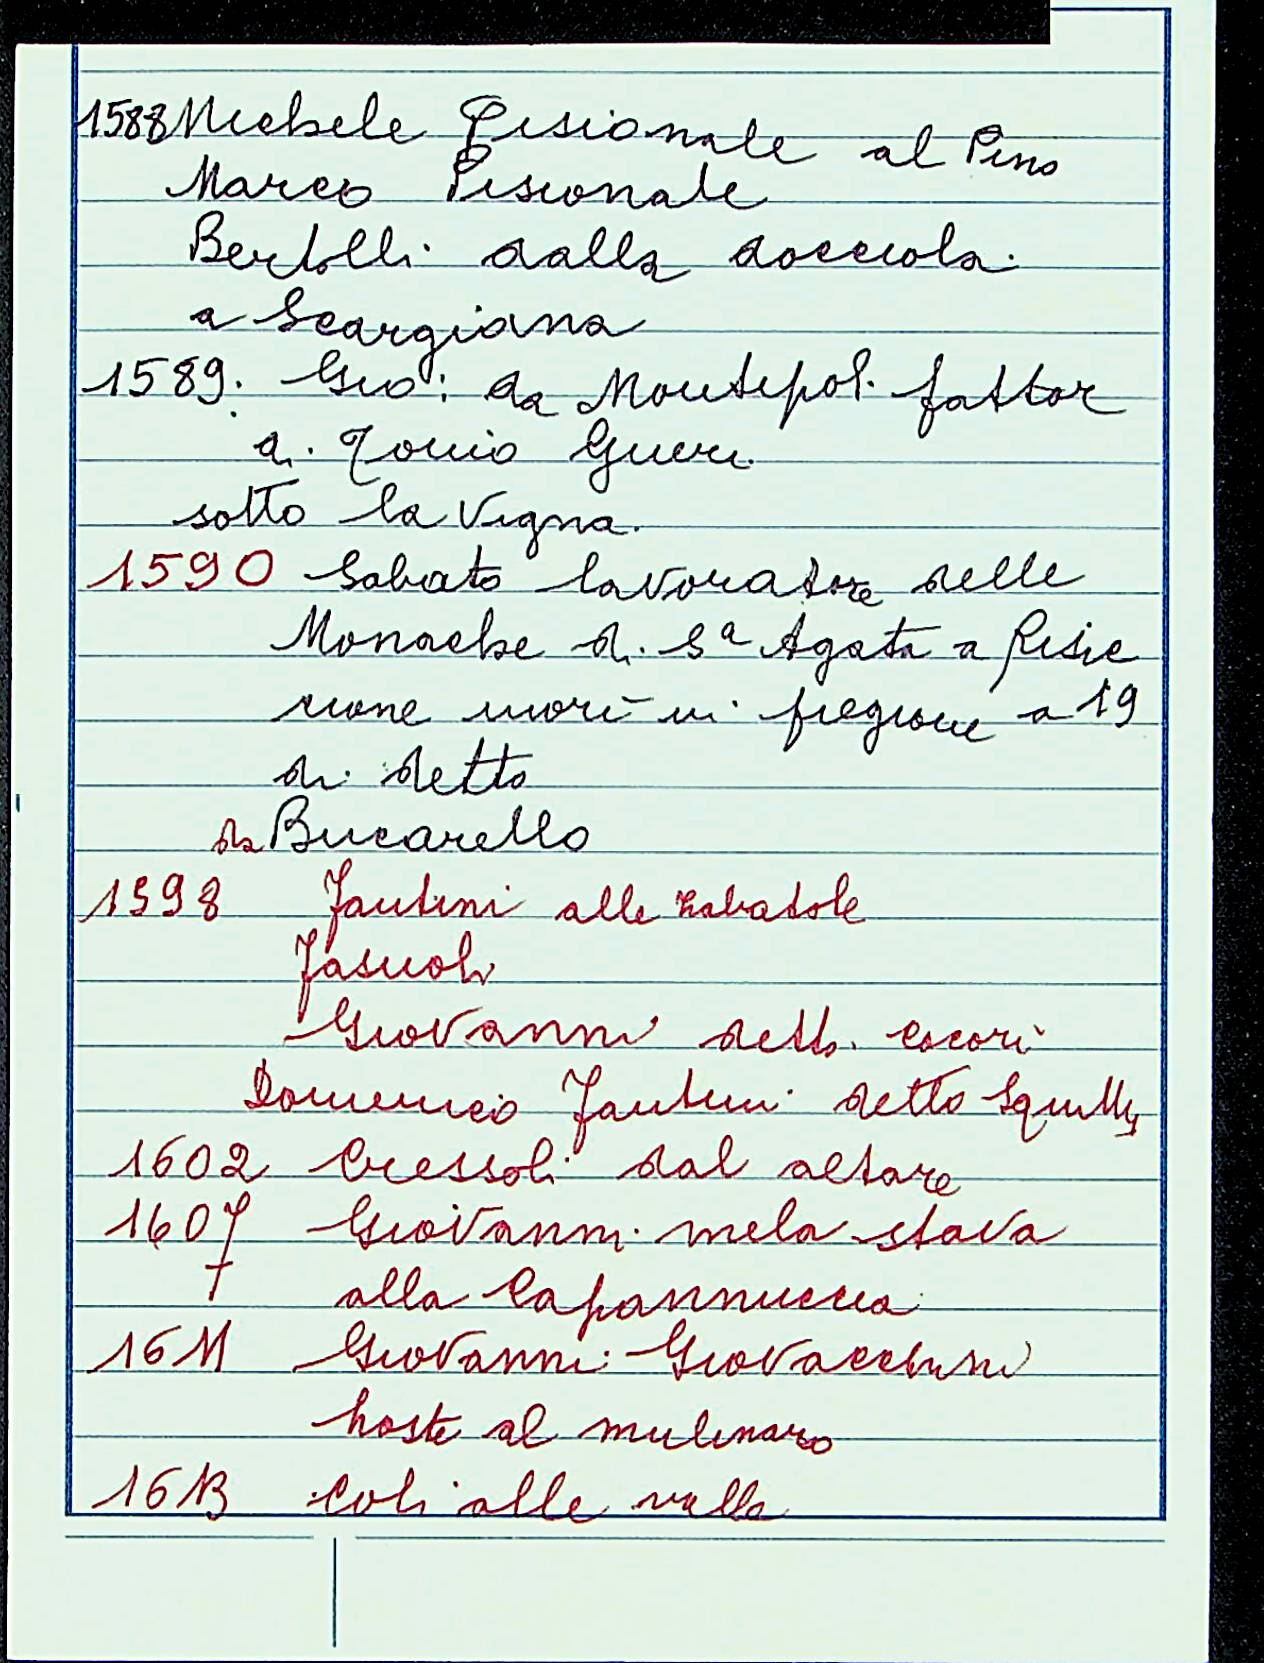 1588 Michele Pisionale al Pino
Marco Pisionale
Bertolli dalla docciola
a Scargiana
1589. Gio: da Montepol. fattor
di Tonio Guerr.
sotto la Vigna.
1590 Sabato lavoratore delle
Monache di Sª Agata a
morì in a 19
di detto
da Bucarello
1598 Fantini alle
Fasuoli
Giovanni detto Cocori
Domenico Fantini detto
1602 Cressoli dal altare
1607 Giovanni mela stava
† alla Capannuccia
1611 Giovanni Giovacchini
hoste al mulinaro
1613 Coli alle valle